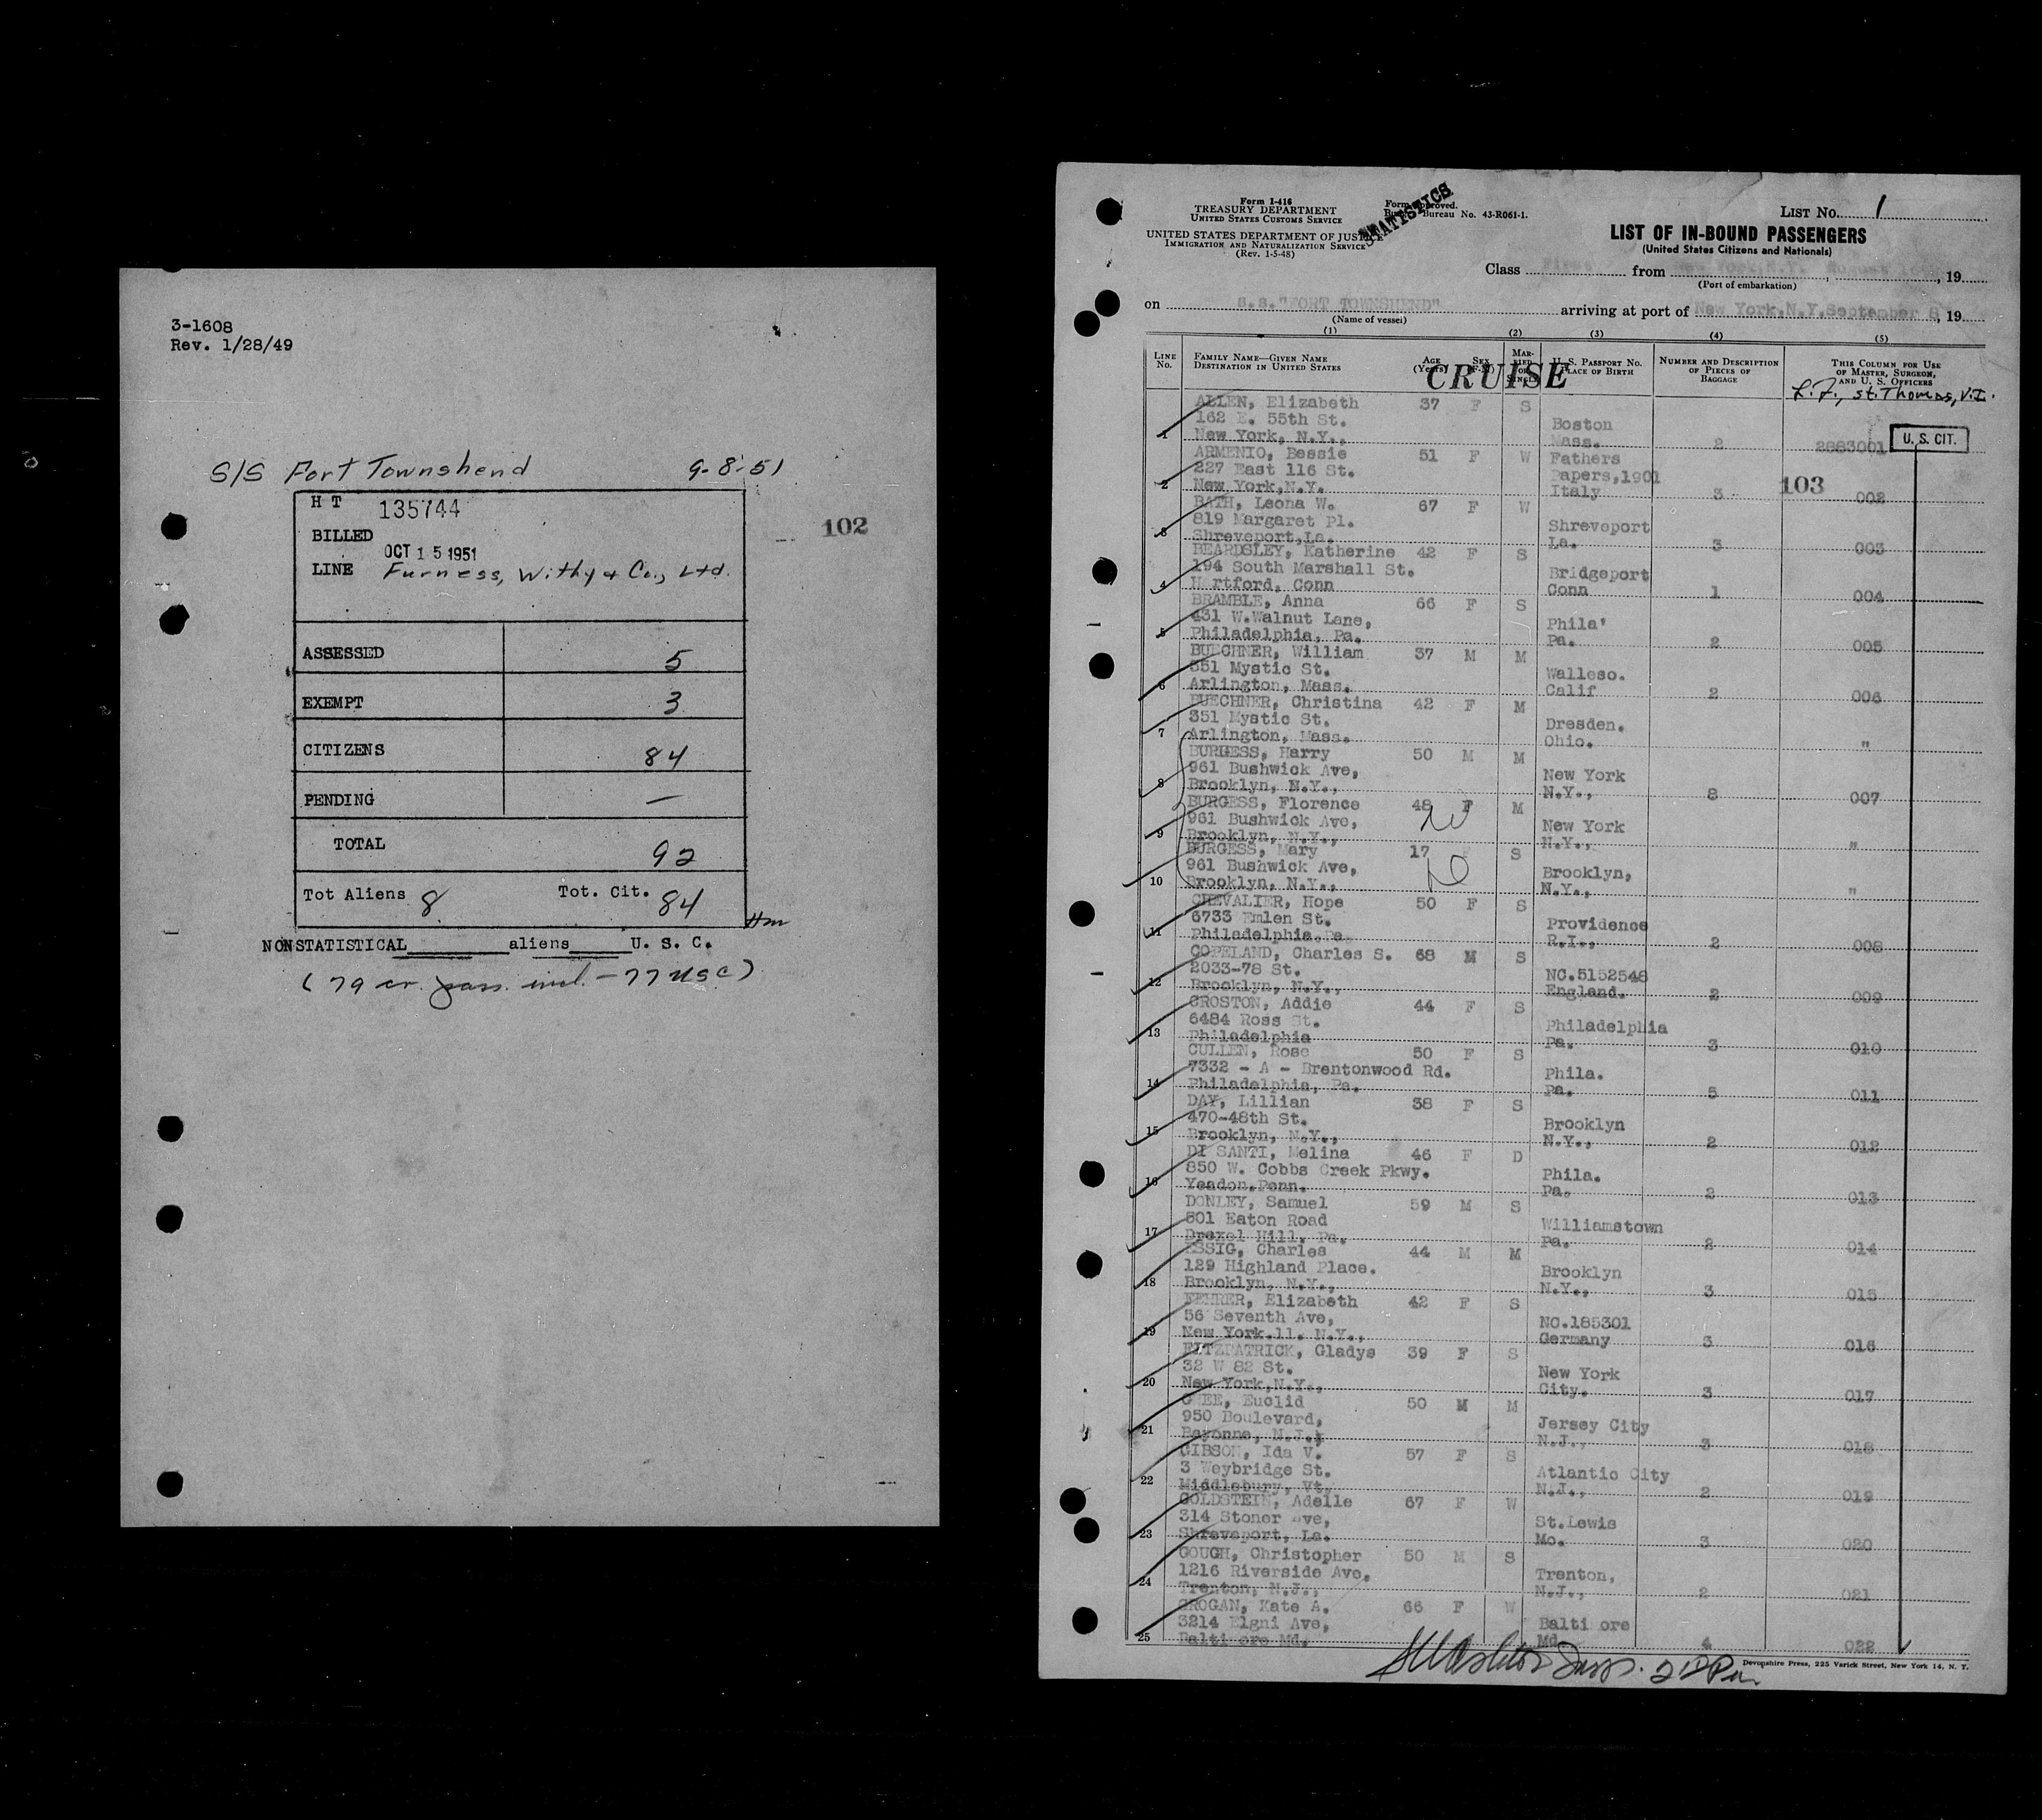 3-1608
Rev. 1/28/49
S/S Fort Townshend 9-8-51
H T 135744
BILLED
OCT 15 1951
LINE Furness, Withy & Co., Ltd.
102
ASSESSED 5
EXEMPT 3
CITIZENS 84
PENDING —
TOTAL 92
Tot Aliens 8 Tot. Cit. 84
NONSTATISTICAL aliens U. S. C.
(79 cr. pass. incl. - 77 USC)
Form I-416
TREASURY DEPARTMENT
UNITED STATES CUSTOMS SERVICE
UNITED STATES DEPARTMENT OF JUSTICE
IMMIGRATION AND NATURALIZATION SERVICE
(Rev. 1-5-48)
Form Approved.
Bureau No. 43-R061-1.
STATISTICS
LIST No. 1
LIST OF IN-BOUND PASSENGERS
(United States Citizens and Nationals)
Class First from New York, N.Y. August , 19
(Port of embarkation)
on S.S."FORT TOWNSHEND" arriving at port of New York,N.Y.September 8, 19
(Name of vessel)
(1) (2) (3) (4) (5)
LINE No. FAMILY NAME—GIVEN NAME DESTINATION IN UNITED STATES AGE (Years) SEX (F-M) MARRIED OR SINGLE U. S. PASSPORT NO. PLACE OF BIRTH NUMBER AND DESCRIPTION OF PIECES OF BAGGAGE THIS COLUMN FOR USE OF MASTER, SURGEON, AND U. S. OFFICERS
CRUISE
St. Thomas, V.I.
U. S. CIT.
103
ALLEN, Elizabeth 37 F S
162 E. 55th St. Boston
1 New York, N.Y., Mass. 2 2883001
ARMENIO, Bessie 51 F W Fathers
227 East 116 St. Papers,1901
2 New York,N.Y. Italy 3 002
BATH, Leona W. 67 F W
819 Margaret Pl. Shreveport
3 Shreveport,La. La. 3 003
BEARDSLEY, Katherine 42 F S
194 South Marshall St. Bridgeport
4 H rtford, Conn Conn 1 004
BRAMBLE, Anna 66 F S
431 W.Walnut Lane, Phila'
5 Philadelphia, Pa. Pa. 2 005
BUECHNER, William 37 M M
351 Mystic St. Walleso.
6 Arlington, Mass. Calif 2 006
BUECHNER, Christina 42 F M
351 Mystic St. Dresden.
7 Arlington, Mass. Ohio. "
BURGESS, Harry 50 M M
961 Bushwick Ave, New York
8 Brooklyn, N.Y., N.Y., 8 007
BURGESS, Florence 48 F M
961 Bushwick Ave, New York
9 Brooklyn, N.Y., N.Y., "
BURGESS, Mary 17 F S
961 Bushwick Ave, Brooklyn,
10 Brooklyn, N.Y., N.Y., "
CHEVALIER, Hope 50 F S
6733 Emlen St. Providence
11 Philadelphia.Pa R.I., 2 008
COPELAND, Charles S. 68 M S
2033-78 St. NC.5152548
12 Brooklyn, N.Y., England. 2 009
CROSTON, Addie 44 F S
6484 Ross St. Philadelphia
13 Philadelphia Pa. 3 010
CULLEN, Rose 50 F S
7332 - A - Brentonwood Rd. Phila.
14 Philadelphia, Pa. Pa. 5 011
DAY, Lillian 38 F S
470-48th St. Brooklyn
15 Brooklyn, N.Y., N.Y., 2 012
DI SANTI, Melina 46 F D
850 W. Cobbs Creek Pkwy. Phila.
16 Yeadon.Penn. Pa. 2 013
DONLEY, Samuel 59 M S
801 Eaton Road Williamstown
17 Drexel Hill, Pa. Pa. 2 014
ESSIG, Charles 44 M M
129 Highland Place. Brooklyn
18 Brooklyn, N.Y., N.Y., 3 015
FEHRER, Elizabeth 42 F S
56 Seventh Ave, NC.185301
19 New York.11. N.Y., Germany 3 016
FITZPATRICK, Gladys 39 F S
32 W 82 St. New York
20 New York,N.Y., City. 3 017
GHEE, Euclid 50 M M
950 Boulevard, Jersey City
21 Bayonne, N.J., N.J., 3 018
GIBSON, Ida V. 57 F S
3 Weybridge St. Atlantic City
22 Middlebury, Vt. N.J., 2 019
GOLDSTEIN, Adelle 67 F W
314 Stoner Ave, St.Lewis
23 Shreveport, La. Mo. 3 020
GOUGH, Christopher 50 M S
1216 Riverside Ave. Trenton,
24 Trenton, N.J., N.J., 2 021
GROGAN, Kate A. 66 F W
3214 Elgni Ave, Balti ore
25 Balti ore Md. Md 4 022
Devonshire Press, 225 Varick Street, New York 14, N. Y.